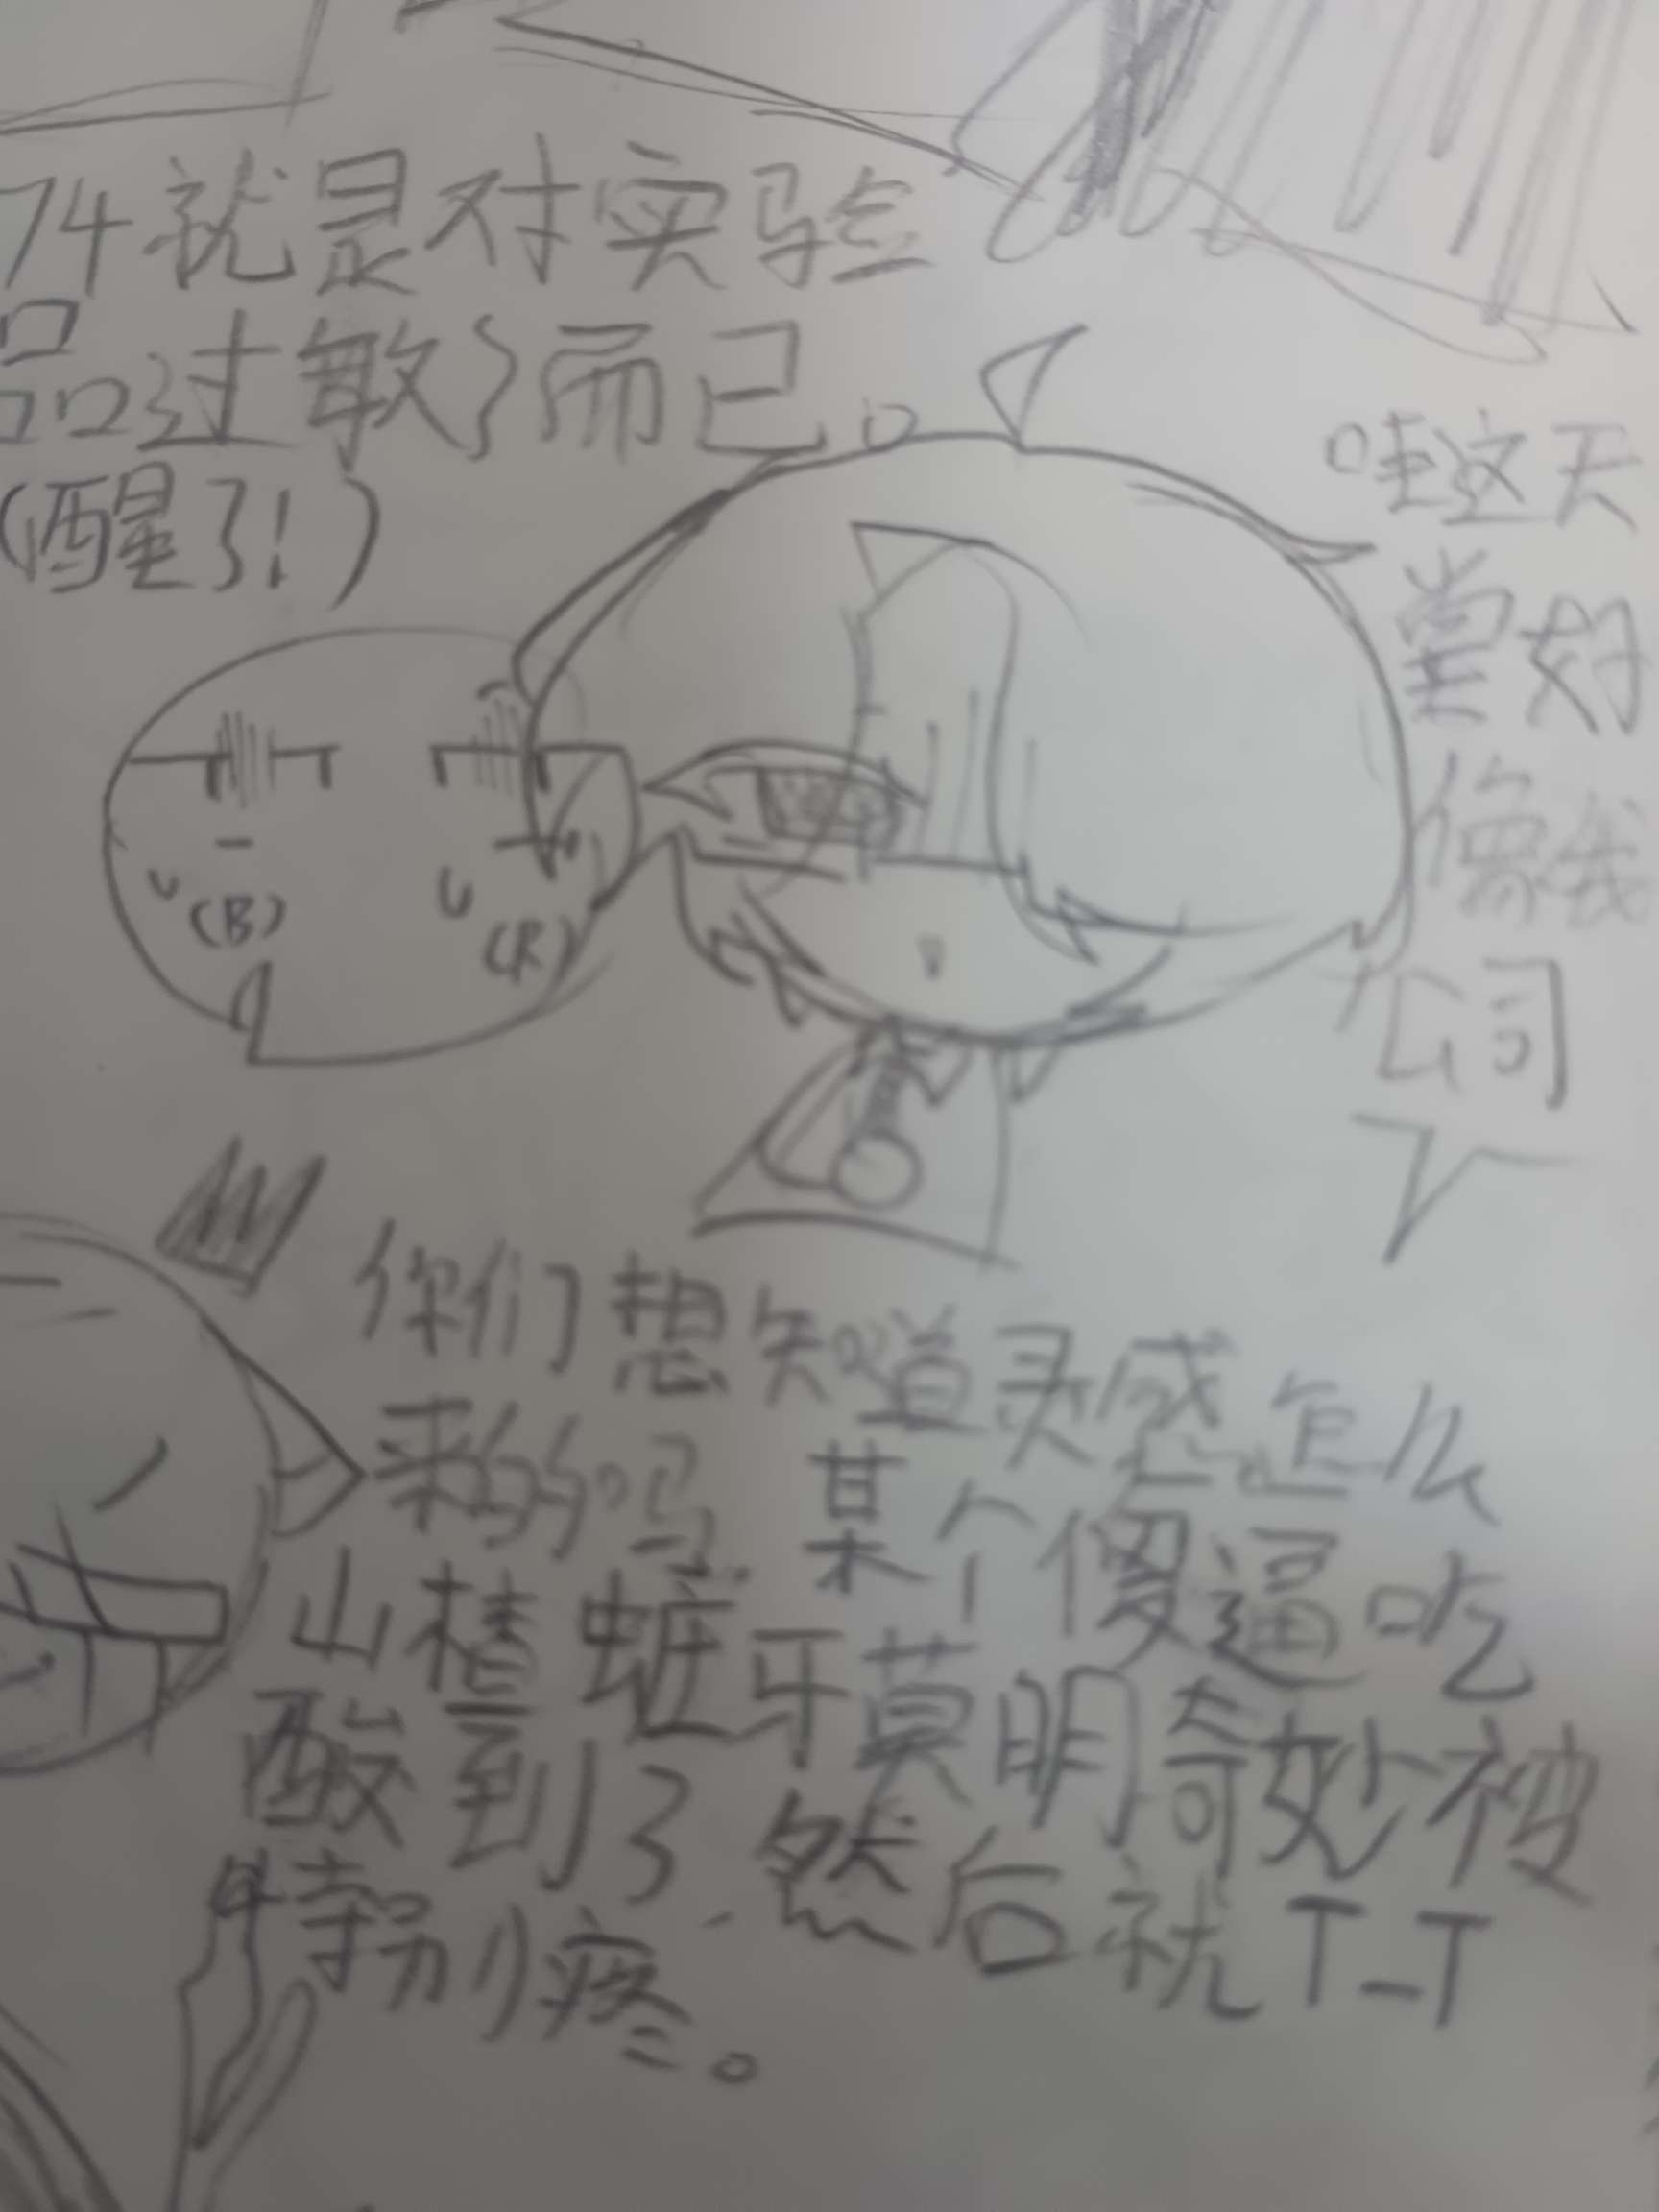 74就是对实验
品过敏了而已。
(醒了!)
哇这天
堂好
像我
公司
(B)
(R)
你们想知道灵感怎么
来的吗 某个傻逼吃
山楂蛀牙莫明奇妙被
酸到了,然后就T_T
特别疼。